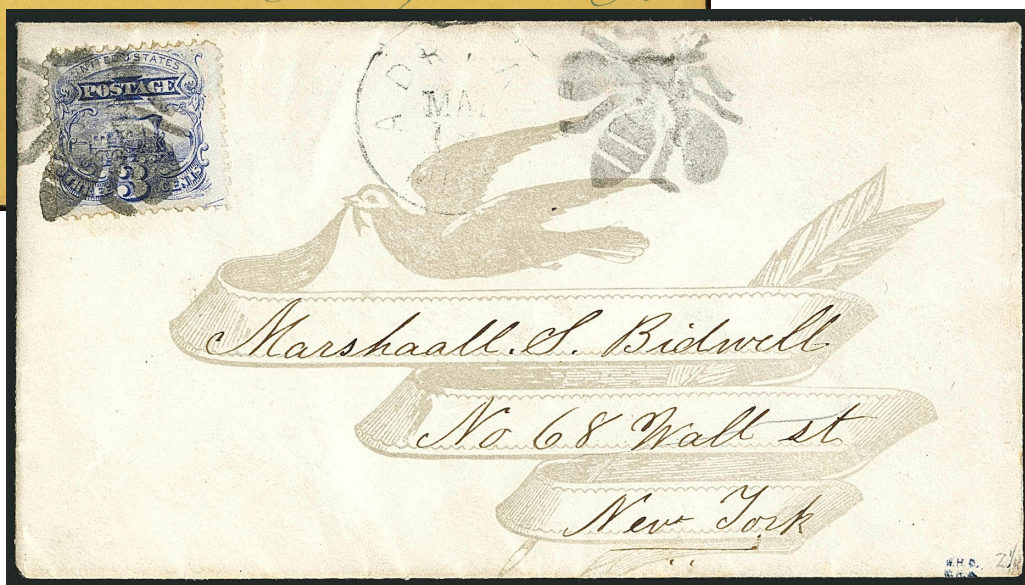 UNITED STATES
POSTAGE
THREE 3 CENTS
MA
Marshaall. S. Bidwell
No 68 Wall st
New York